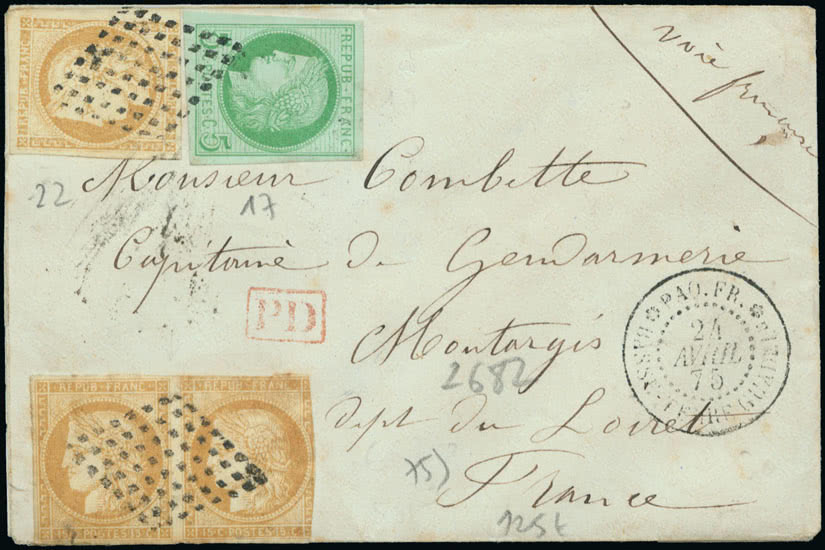 REPUB·FRANC·
REPUB·FRANC·
POSTES·C·5
voie française
22
17
Monsieur Combette
Capitaine de Gendarmerie
PD
Montargis
2682
dept du Loiret
75)
France
125t
PAQ. FR.
24
AVRIL
75
REPUB·FRANC·
REPUB·FRANC·
15·C·POSTES·15·C·
15·C·POSTES·15·C·